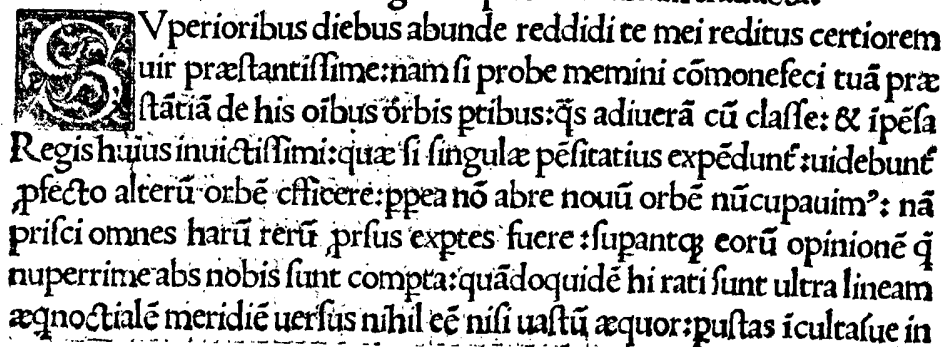 SVperioribus diebus abunde reddidi te mei reditus certiorem
uir præſtantiſſime:nam ſi probe memini cōmonefeci tuā præ
ſtātiā de his oībus orbis ꝑtibus:q̄s adiuerā cū claſſe: & īpēſa
Regis huius inuictiſſimi:quæ ſi ſingulæ pēſitatius expēdunt᷑:uidebunt᷑
ꝓfecto alterū orbē efficere:ꝓpea nō abre nouū orbē nūcupauimꝰ: nā
priſci omnes harū rerū ꝓrſus exptes fuere:ſupantqꝫ eorū opinionē q̄
nuperrime abs nobis ſunt compta:quādoquidē hi rati ſunt ultra lineam
æqnoctialē meridiē uerſus nihil eē niſi uaſtū æquor:puſtas īcultaſue in